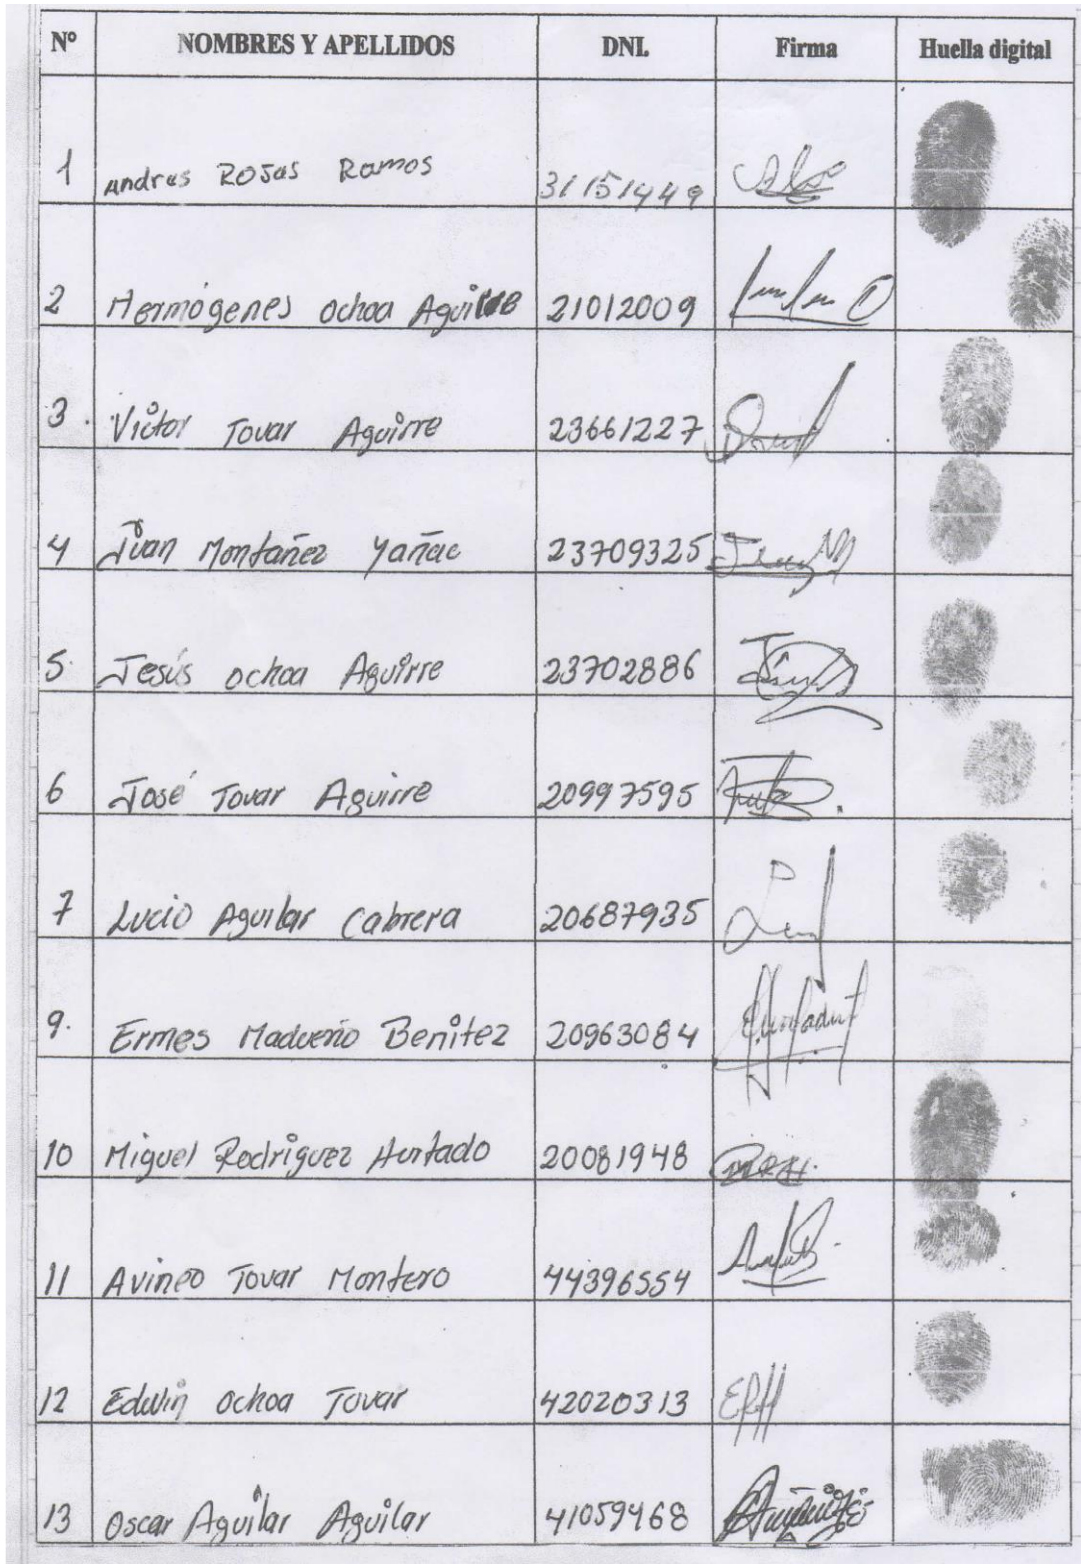 Nº NOMBRES Y APELLIDOS DNI. Firma Huella digital
1 Andres ROJas Ramos 31151449
2 Hermógenes ochoa 21012009
3. Víctor Tovar Aguirre 23661227
4 Juan Montañez Yañac 23709325
5. Jesús ochoa Aguirre 23702886
6 José Tovar Aguirre 20997595
7 Lucio Aguilar Cabrera 20687935
9. Ermes Madueño Benítez 20963084
10 Miguel Rodríguez Hurtado 20081948
11 Avineo Tovar Montero 44396554
12 Edwin ochoa Tovar 42020313
13 Oscar Aguilar Aguilar 41059468